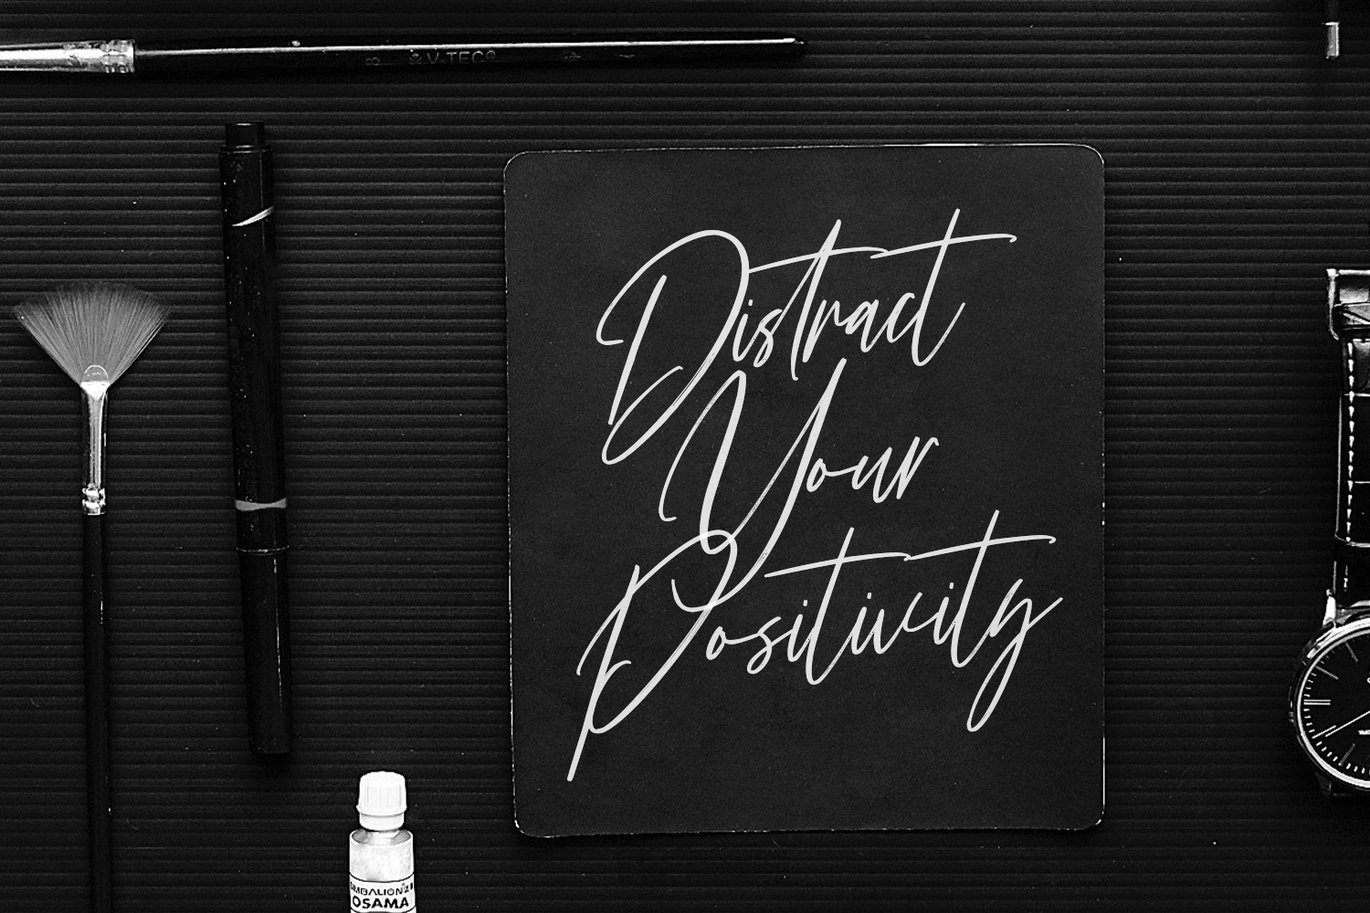 V-TEC®
Distract
Your
Positivity
OSAMA